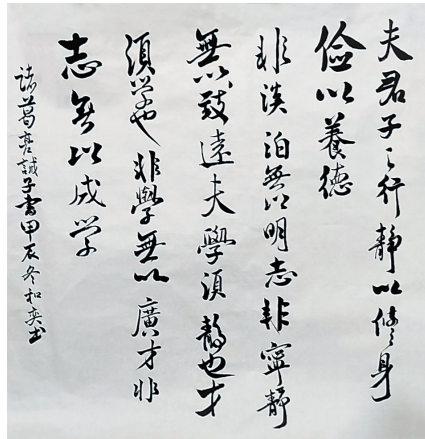 夫君子之行靜以修身
儉以養德
非淡泊無以明志非寧靜
無以致遠夫學須靜也才
須學也非學無以廣才非
志無以成学
諸葛亮誡子書甲辰冬和奕书